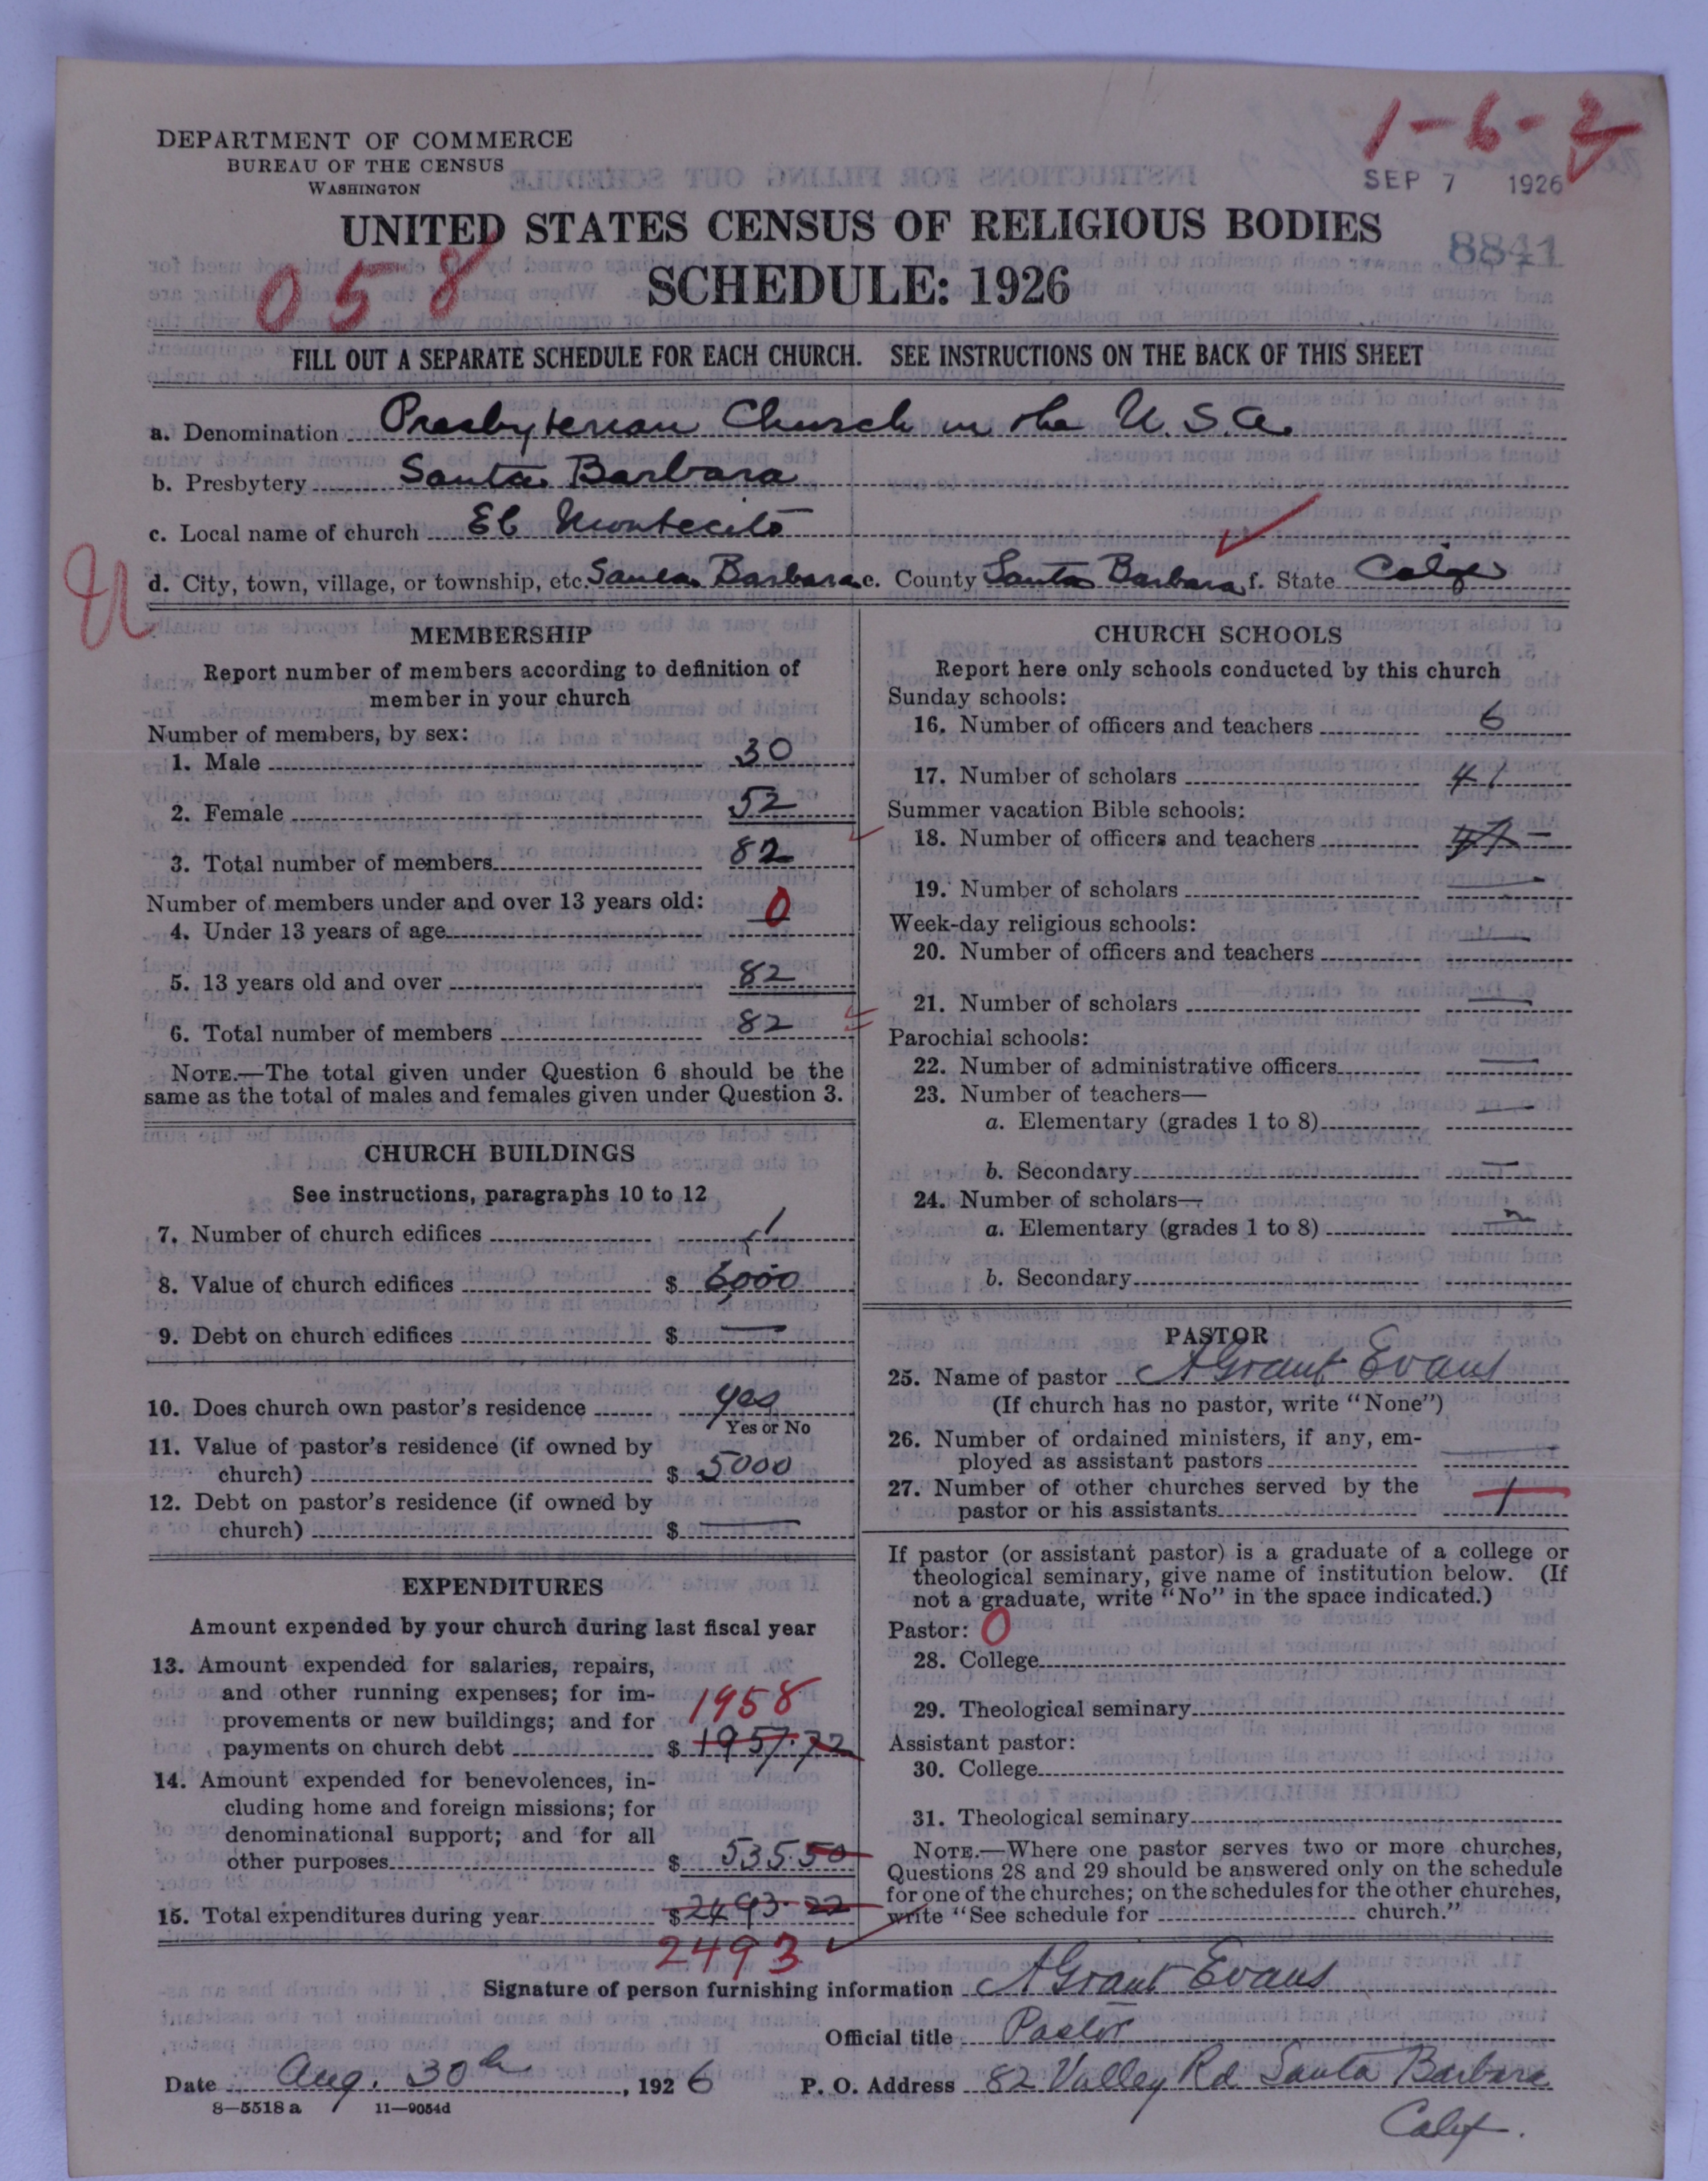 1-6-2
DEPARTMENT OF COMMERCE
BUREAU OF THE CENSUS
WASHINGTON
SEP 7 1926
UNITED STATES CENSUS OF RELIGIOUS BODIES
8841
058
SCHEDULE: 1926
FILL OUT A SEPARATE SCHEDULE FOR EACH CHURCH. SEE INSTRUCTIONS ON THE BACK OF THIS SHEET
a. Denomination Presbyterian Church in the U.S.A.
b. Presbytery Santa Barbara
c. Local name of church El Montecito
d. City, town, village, or township, etc. Santa Barbara e. County Santa Barbara f. State Calif
MEMBERSHIP
Report number of members according to definition of
member in your church
Number of members, by sex:
1. Male 30
2. Female 52
3. Total number of members 82
Number of members under and over 13 years old:
4. Under 13 years of age 0
5. 13 years old and over 82
6. Total number of members 82
NOTE.—The total given under Question 6 should be the
same as the total of males and females given under Question 3.
CHURCH BUILDINGS
See instructions, paragraphs 10 to 12
7. Number of church edifices 1
8. Value of church edifices $ 6000
9. Debt on church edifices $ —
10. Does church own pastor's residence yes
Yes or No
11. Value of pastor's residence (if owned by
church) $ 5000
12. Debt on pastor's residence (if owned by
church) $ —
EXPENDITURES
Amount expended by your church during last fiscal year
13. Amount expended for salaries, repairs,
and other running expenses; for im-
provements or new buildings; and for 1958
payments on church debt $ 1957.72
14. Amount expended for benevolences, in-
cluding home and foreign missions; for
denominational support; and for all
other purposes $ 535.50
15. Total expenditures during year $ 2493.22
2493
CHURCH SCHOOLS
Report here only schools conducted by this church
Sunday schools:
16. Number of officers and teachers 6
17. Number of scholars 41
Summer vacation Bible schools:
18. Number of officers and teachers —
19. Number of scholars —
Week-day religious schools:
20. Number of officers and teachers —
21. Number of scholars —
Parochial schools:
22. Number of administrative officers —
23. Number of teachers—
a. Elementary (grades 1 to 8) —
b. Secondary —
24. Number of scholars—
a. Elementary (grades 1 to 8)
b. Secondary
PASTOR
25. Name of pastor A Grant Evans
(If church has no pastor, write "None")
26. Number of ordained ministers, if any, em-
ployed as assistant pastors —
27. Number of other churches served by the
pastor or his assistants 1
If pastor (or assistant pastor) is a graduate of a college or
theological seminary, give name of institution below. (If
not a graduate, write "No" in the space indicated.)
Pastor: 0
28. College
29. Theological seminary
Assistant pastor:
30. College
31. Theological seminary
NOTE.—Where one pastor serves two or more churches,
Questions 28 and 29 should be answered only on the schedule
for one of the churches; on the schedules for the other churches,
write "See schedule for church."
Signature of person furnishing information A Grant Evans
Official title Pastor
Date Aug. 30th, 1926 P. O. Address 82 Valley Rd Santa Barbara
Calif.
8—5518 a 11—9054d